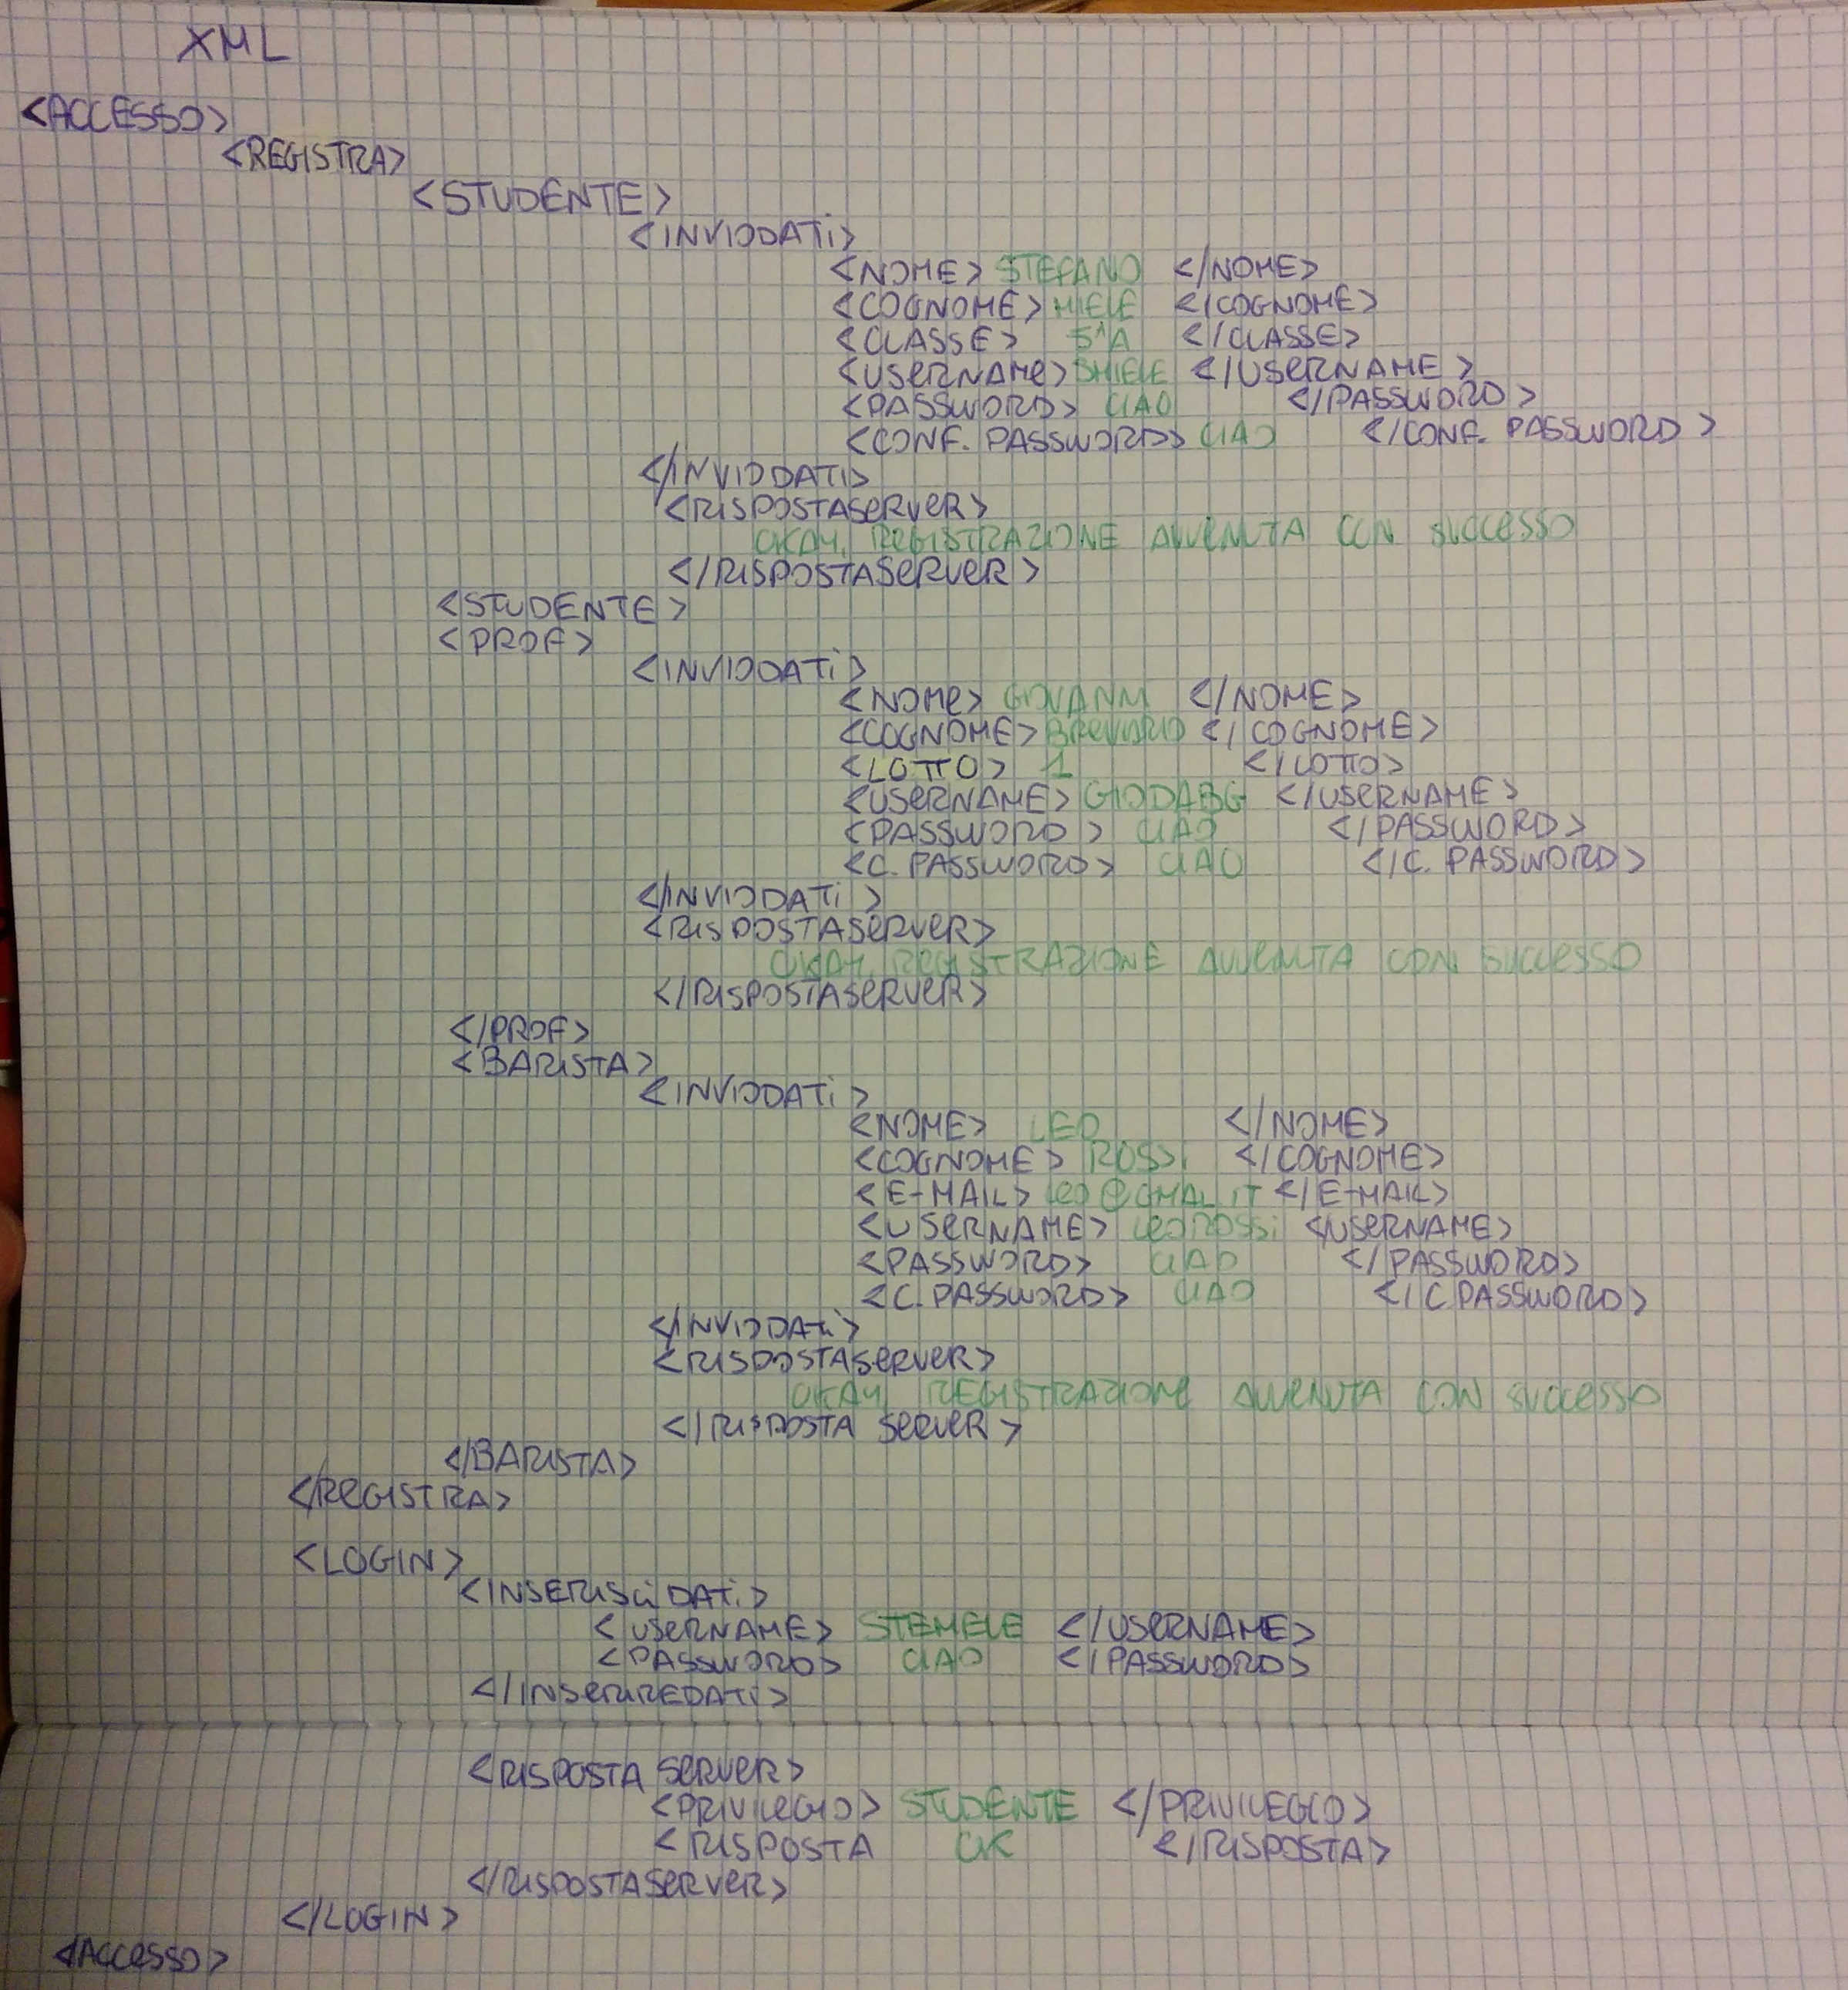 XML
<ACCESSO>
<REGISTRA>
<STUDENTE>
<INVIODATi>
<NOME> STEFANO </NOME>
<COGNOME> MIELE </COGNOME>
<CLASSE> 5^A </CLASSE>
<USERNAME> SMIELE </USERNAME>
<PASSWORD> CIAO </PASSWORD>
<CONF. PASSWORD> CIAO </CONF. PASSWORD>
</INVIODATI>
<RISPOSTASERVER>
OKAY, REGISTRAZIONE AVVENUTA CON SUCCESSO
</RISPOSTASERVER>
<STUDENTE>
<PROF>
<INVIODATi>
<NOME> GIOVANNI </NOME>
<COGNOME> </COGNOME>
<LOTTO> 1 </LOTTO>
<USERNAME> GIODABG </USERNAME>
<PASSWORD> CIAO </PASSWORD>
<C. PASSWORD> CIAO </C. PASSWORD>
</INVIODATi>
<RISPOSTASERVER>
OKAY, REGISTRAZIONE AVVENUTA CON SUCCESSO
</RISPOSTASERVER>
</PROF>
<BARISTA>
<INVIODATi>
<NOME> LEO </NOME>
<COGNOME> ROSSi </COGNOME>
<E-MAIL> LEO@GMAL.IT </E-MAIL>
<USERNAME> LEOROSSi <USERNAME>
<PASSWORD> CIAO </PASSWORD>
<C. PASSWORD> CIAO </C PASSWORD>
</INVIODATi>
<RISPOSTASERVER>
OKAY, REGISTRAZIONE AVVENUTA CON SUCCESSO
</RISPOSTA SERVER>
</BARISTA>
</REGISTRA>
<LOGIN>
<INSERISCi DATi>
<USERNAME> STEMIELE </USERNAME>
<PASSWORD> CIAO </PASSWORD>
</INSERIREDATi>
<RISPOSTA SERVER>
<PRIVILEGIO> STUDENTE </PRIVILEGIO>
<RISPOSTA OK </RISPOSTA>
</RISPOSTASERVER>
</LOGIN>
</ACCESSO>